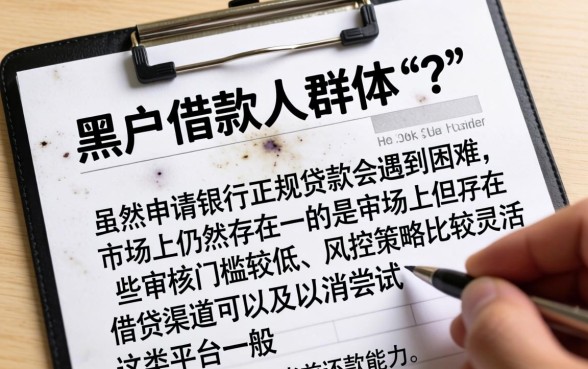 黑户借款人群体“?”
虽然申请银行正规贷款会遇到困难，
市场上仍然存在一的是审场上但存在
些审核门槛较低、风控策略比较灵活
借贷渠道可以及以消尝试
这类平台一般
还款能力。